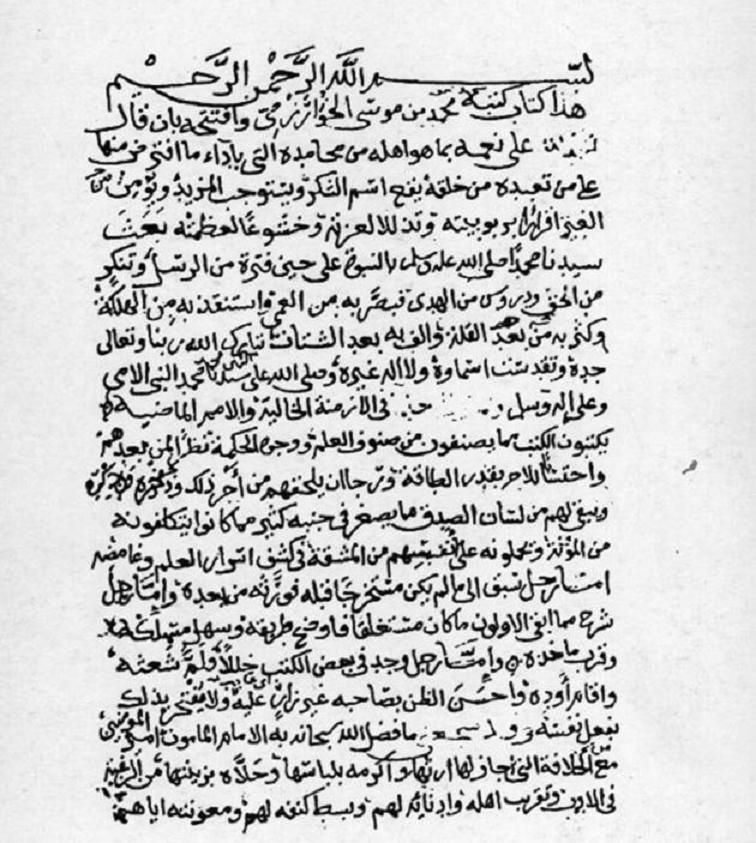 بسم الله الرحمن الرحيم
هذا كتاب كتبه محمد بن موسى الخوارزمي وافتتحه بان قال
على نعمه بما هو اهله من محامده التي باداء ما افترض منها
على من تعبده من خلقه يقع اسم الشكر ويستوجب المزيد ويؤمن من
الغير اقرارا بربوبيته وتذللا لعزته وخشوعا لعظمته بعث
سيدنا محمدا صلى الله عليه وسلم بالنبوة على حين فترة من الرسل وتنكر
من الحق ودروس من الهدى فبصر به من العمى واستنقذ به من الهلكة
وكثر به من بعد القلة والف به بعد الشتات تبارك الله ربنا وتعالى
جده وتقدست اسماؤه ولا اله غيره وصلى الله على سيدنا محمد النبي الامي
وعلى اله وسلم في الازمنة الخالية والامم الماضية
يكتبون الكتب مما يصنفون من صنوف العلم ووجوه الحكمة نظرا لمن بعدهم
واحتسابا للاجر بقدر الطاقة ورجا ان يلحقهم من اجر ذلك وذخره وذكره
ويبقى لهم من لسان الصدق ما يصغر في جنبه كثير مما كانوا يتكلفونه
من المؤنة ويحملونه على انفسهم من المشقة في كشف اسرار العلم وغامضه
اما رجل سبق الى ما لم يكن مستخرجا قبله فورثه من بعده واما رجل
شرح مما ابقى الاولون ما كان مستغلقا فاوضح طريقه وسهل مسلكه
وقرب ماخذه واما رجل وجد في بعض الكتب خللا فلم شعثه
واقام اوده واحسن الظن بصاحبه غير زار عليه ولا مفتخر بذلك
بفعل نفسه ما فضل الله سبحانه به الامام المامون امير المؤمنين
مع الخلافة التي حاز له ارثها واكرمه بلباسها وحلاه بزينتها من الرغبة
في الادب وتقريب اهله وادنائه لهم وبسط كنفه لهم ومعونته اياهم